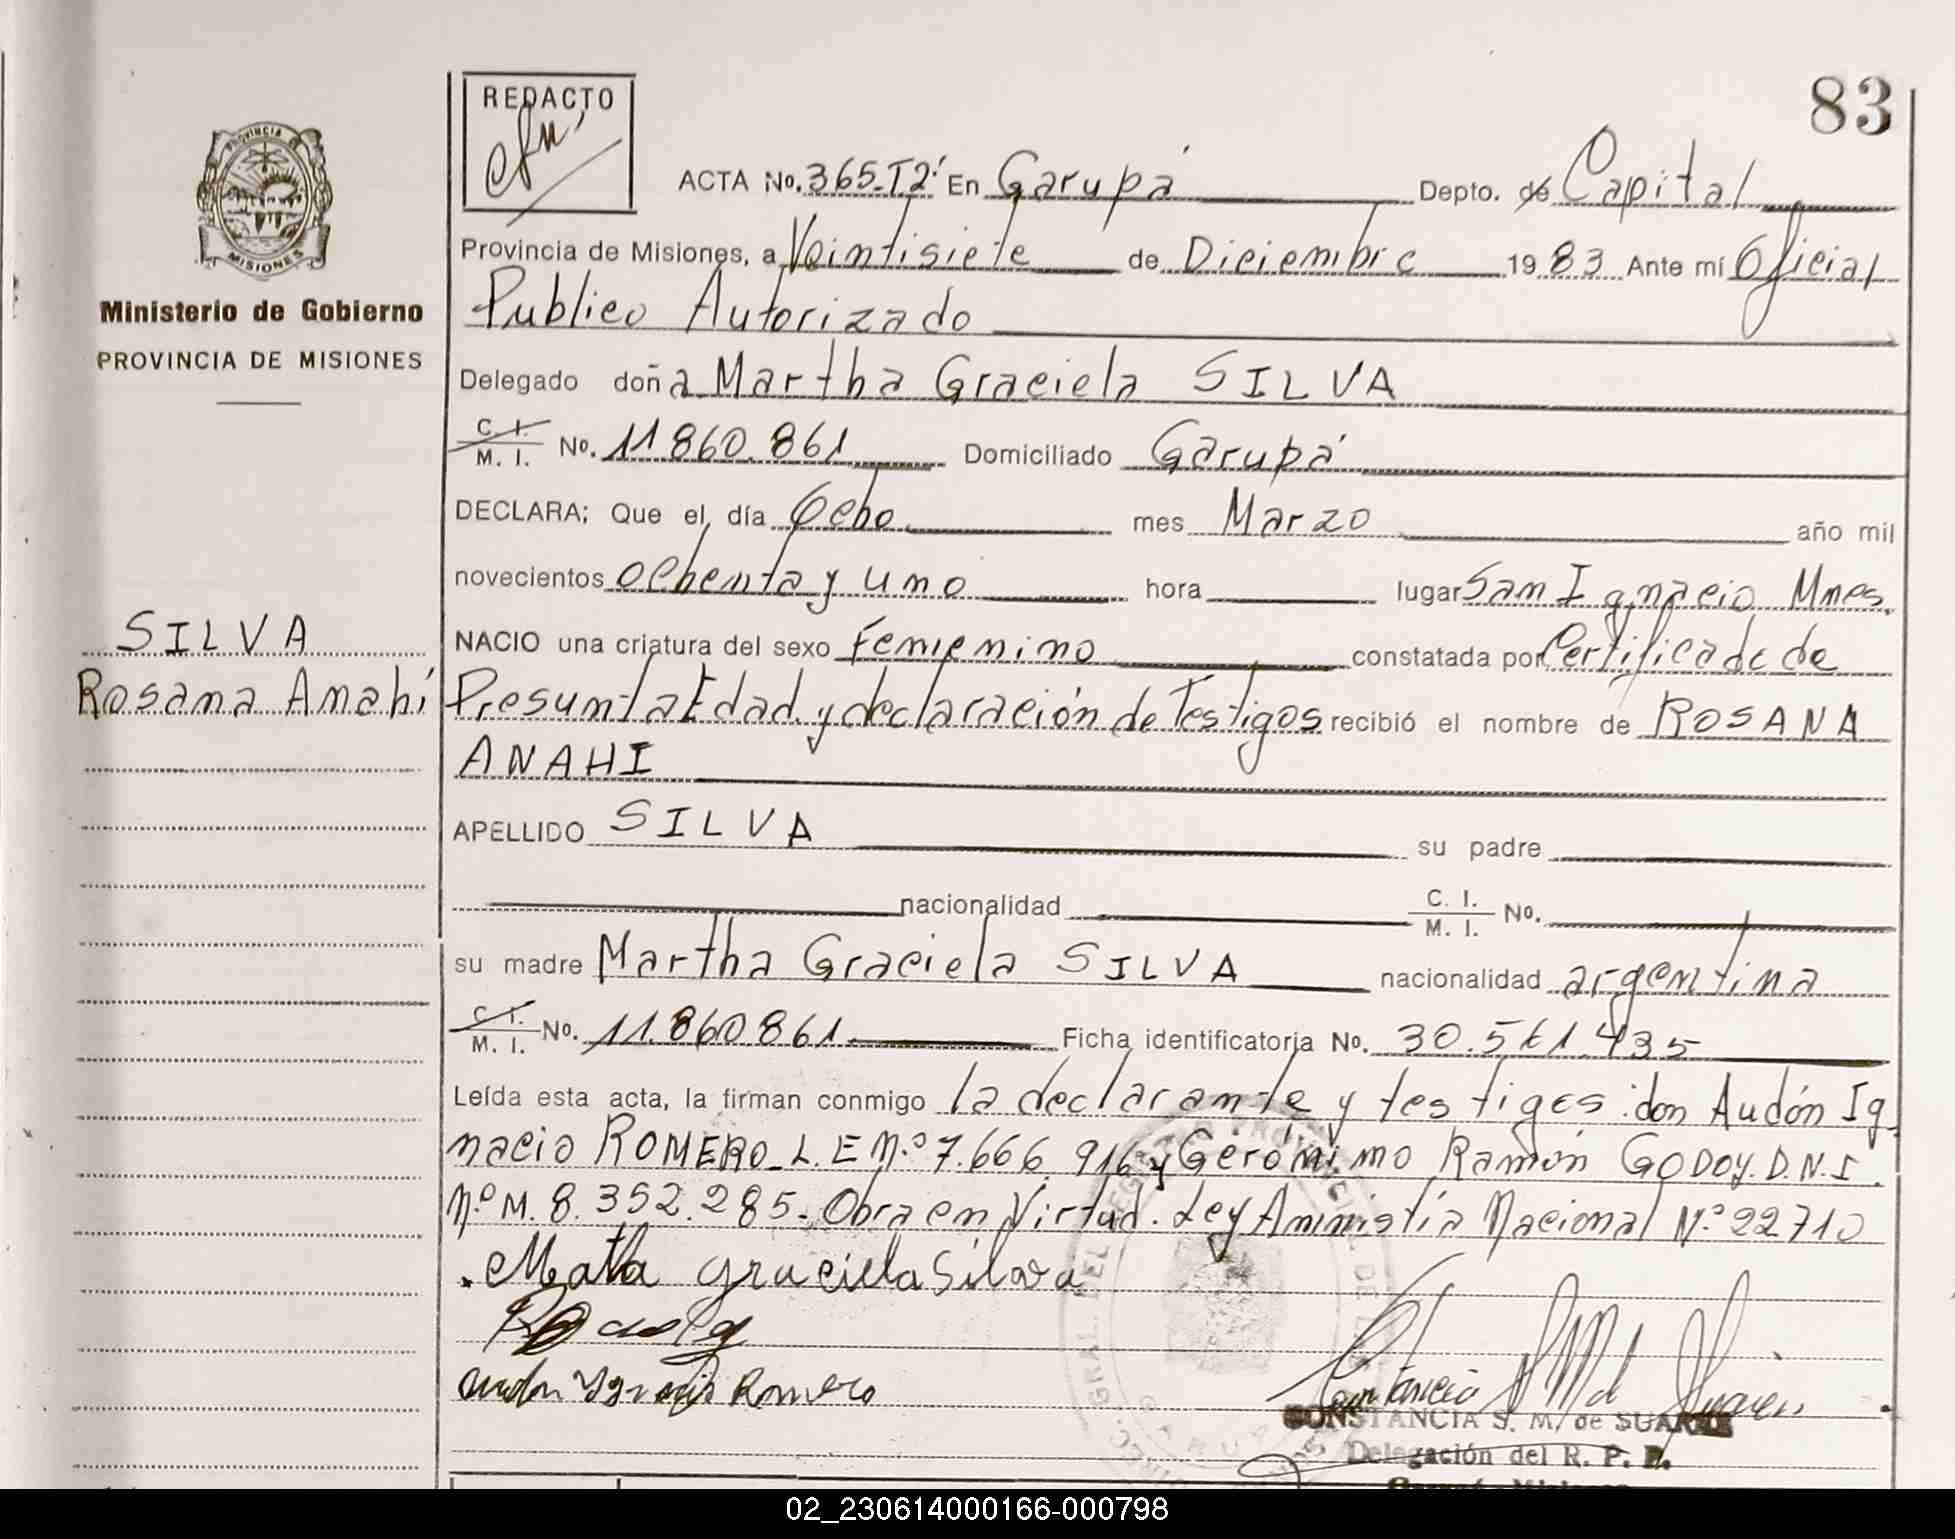 83
REDACTO
ACTA No. 365-T2' En Garupá Depto. de Capital
Provincia de Misiones, a Veintisiete de Diciembre 1983 Ante mí Oficial
Publico Autorizado
PROVINCIA
MISIONES
Ministerio de Gobierno
PROVINCIA DE MISIONES
Delegado doña Martha Graciela SILVA
C. I.
M. I. No. 11.860.861 Domiciliado Garupá
DECLARA; Que el día Ocho mes Marzo año mil
novecientos ochenta y uno hora lugar San Ignacio Mnes.
SILVA
Rosana Anahí
NACIO una criatura del sexo Femenino constatada por Certificado de
Presunta Edad y declaración de Testigos recibió el nombre de ROSANA
ANAHI
APELLIDO SILVA su padre
nacionalidad C. I.
M. I. No.
su madre Martha Graciela SILVA nacionalidad argentina
C. I.
M. I. No. 11.860.861. Ficha identificatoria No. 30.561.435
Leída esta acta, la firman conmigo la declarante y testigos: don Audón Ig
nacio ROMERO_L.E N.º 7.666.916 y Gerónimo Ramón GODOY. D.N.I.
N.º M. 8.352.285. Obra en Virtud. Ley Amnistía Nacional N.º 22710
Mata Graciela Silva
Audon Ygnacio Romero
CONSTANCIA S. M. de SUAREZ
Delegación del R. P. P.
02_230614000166-000798